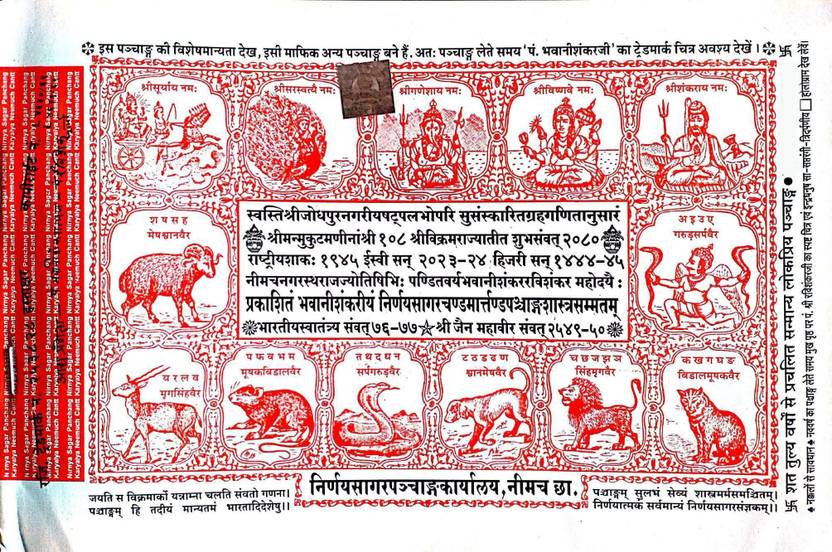 ❇ इस पञ्चाङ्ग की विशेषमान्यता देख, इसी माफिक अन्य पञ्चाङ्ग बने हैं. अतः पञ्चाङ्ग लेते समय 'पं. भवानीशंकरजी' का ट्रेडमार्क चित्र अवश्य देखें। ❇
श्रीसूर्याय नमः
श्रीसरस्वत्यै नमः
श्रीगणेशाय नमः
श्रीविष्णवे नमः
श्रीशंकराय नमः
श ष स ह
मेषश्वानवैर
स्वस्तिश्रीजोधपुरनगरीयषट्पलभोपरि सुसंस्कारितग्रहगणितानुसारं
श्रीमन्मुकुटमणीनांश्री १०८ श्रीविक्रमराज्यातीत शुभसंवत् २०८०
राष्ट्रीयशाकः १९४५ ईस्वी सन् २०२३-२४ हिजरी सन् १४४४-४५
नीमचनगरस्थराजज्योतिषिभिः पण्डितवर्यभवानीशंकररविशंकर महोदयैः
प्रकाशितं भवानीशंकरीयं निर्णयसागरचण्डमार्त्तण्डपञ्चाङ्गशास्त्रसम्मतम्
भारतीयस्वातंत्र्य संवत् ७६-७७ ☆ श्री जैन महावीर संवत् २५४९-५०
अ इ उ ए
गरुड़सर्पवैर
य र ल व
मृगसिंहवैर
प फ ब भ म
मूषकबिडालवैर
त थ द ध न
सर्पगरुड़वैर
ट ठ ड ढ ण
श्वानमेषवैर
च छ ज झ ञ
सिंहमृगवैर
क ख ग घ ङ
बिडालमूषकवैर
निर्णयसागरपञ्चाङ्गकार्यालय, नीमच छा.
जयति स विक्रमार्को यन्नाम्ना चलति संवतो गणना।
पञ्चाङ्गम् हि तदीयं मान्यतमं भारतादिदेशेषु।।
पञ्चाङ्गम् सुलभं सेव्यं शास्त्रमर्मसमञ्चितम्।
निर्णयात्मक सर्वमान्यं निर्णयसागरसंज्ञकम्।।
卐 शत तुल्य वर्षों से प्रचलित सन्मान्य लोकप्रिय पञ्चाङ्ग
Nirnya Sagar Panchang
Karyalya Neemuch Cantt